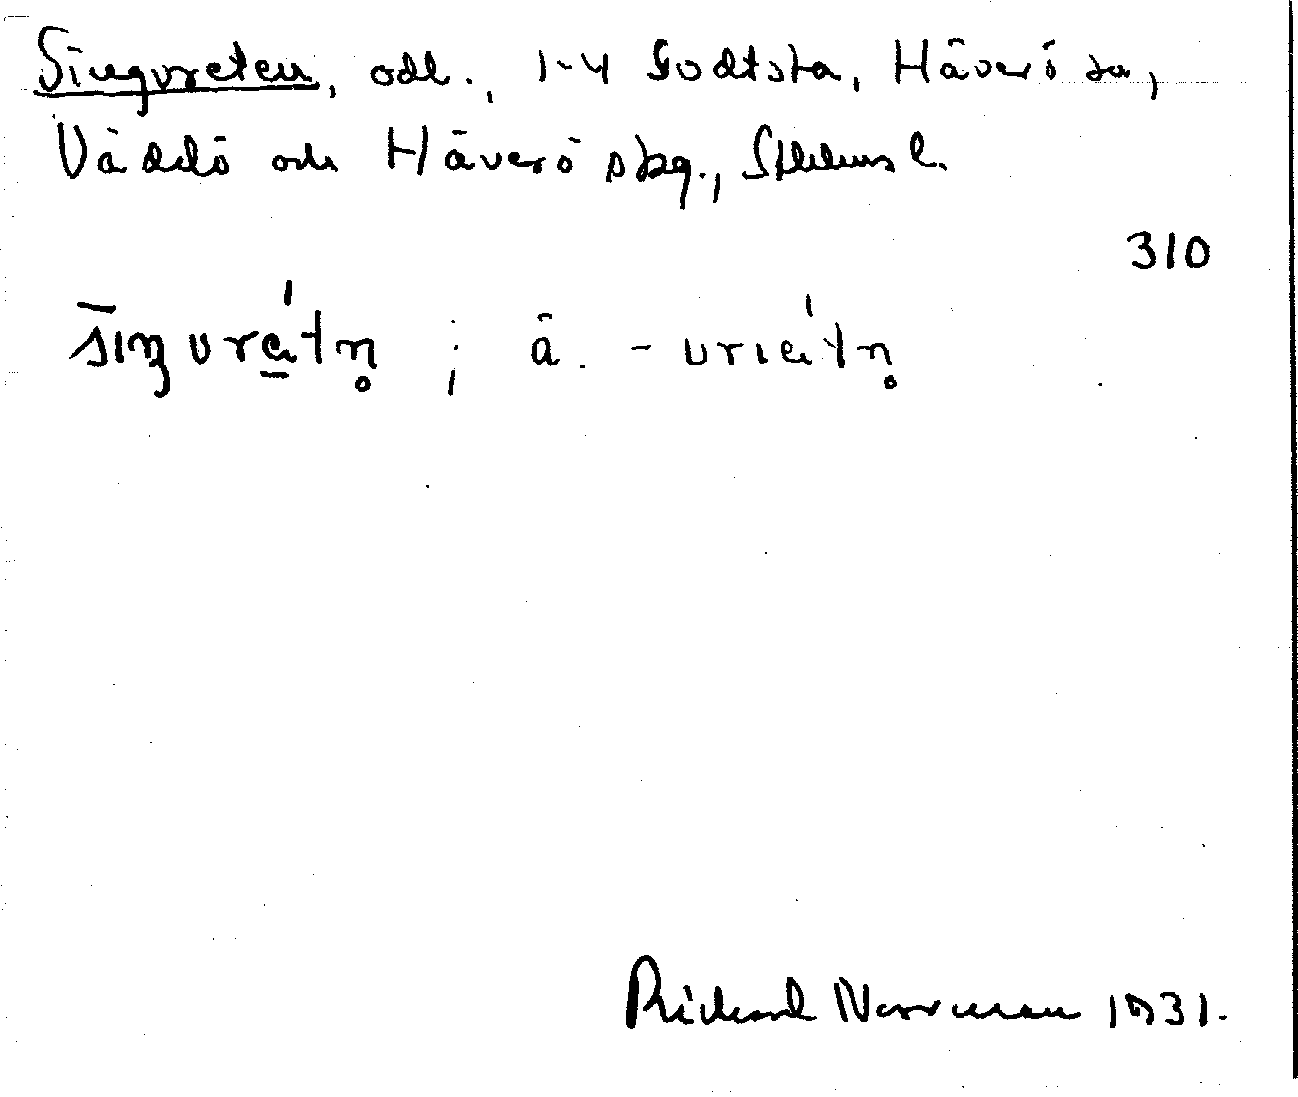 Singvreten, odl., 1-4 Godtsta, Häverö sn,
Väddö och Häverö skg., Sthlms l.
310
s̄iŋvrétn̥ ; ä. -vriétn̥
Rickard Norrman 1931.